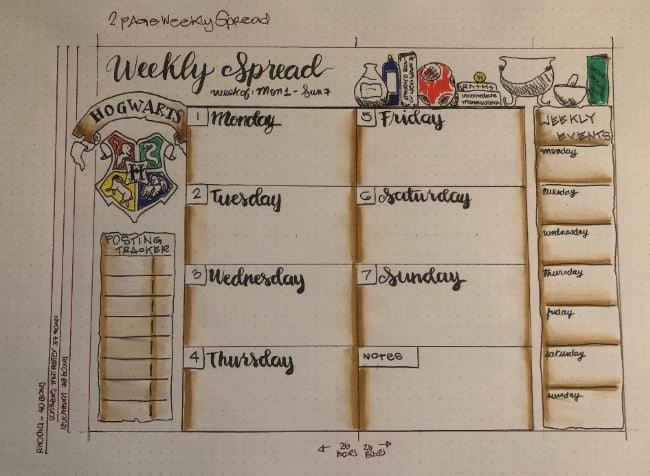 2 PAGE Weekly Spread
Weekly Spread
week of: Mon 1 - Sun 7
HOGWARTS
H
1 Monday
2 Tuesday
3 Wednesday
4 Thursday
5 Friday
6 Saturday
7 Sunday
NOTES
POSTING
TRACKER
WEEKLY
EVENTS
monday
tuesday
wednesday
thursday
friday
saturday
sunday
intermediate
← 26 26 →
BOXES BOXES